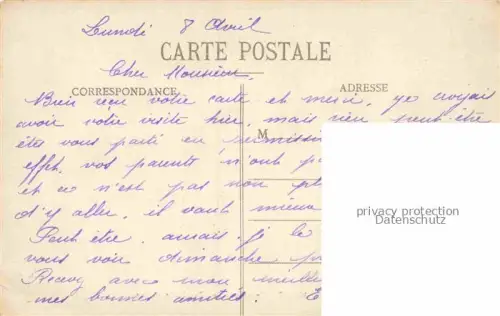 Lundi 8 Avril
CARTE POSTALE
Cher Monsieur,
CORRESPONDANCE ADRESSE
Bien reçu votre carte et merci, je croyais
avoir votre visite hier, mais rien peut être
êtes vous parti en
M
effet, vos parents n'ont
et ce n'est pas non
d'y aller, il vaut mieux
privacy protection
Datenschutz
Peut être, aurais-je le
vous voir dimanche
Recevez avec mon
mes bonnes amitiés.